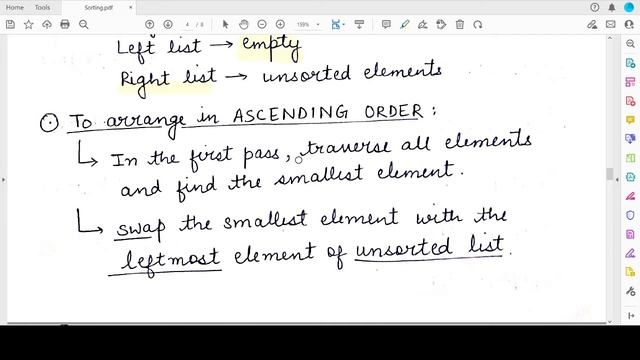 Home Tools Sorting.pdf
4 / 8 159%
Left list → empty
Right list → unsorted elements
To arrange in ASCENDING ORDER :
In the first pass, traverse all elements
and find the smallest element.
swap the smallest element with the
leftmost element of unsorted list.